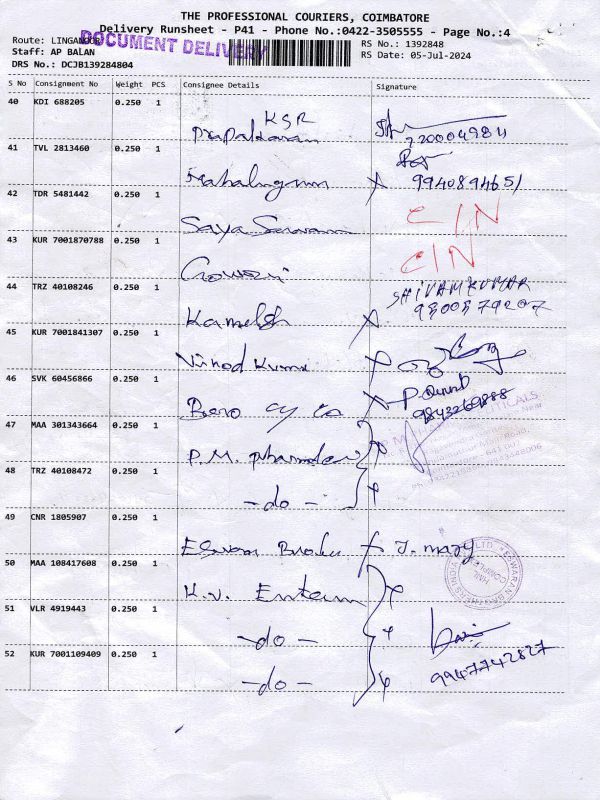 THE PROFESSIONAL COURIERS, COIMBATORE
Delivery Runsheet - P41 - Phone No.:0422-3505555 - Page No.:4
Route: LINGANOOR
DOCUMENT DELIVERY
RS No.: 1392848
Staff: AP BALAN
RS Date: 05-Jul-2024
DRS No.: DCJB139284804
S No Consignment No Weight PCS Consignee Details Signature
40 KDI 688205 0.250 1
KSR
7200049811
41 TVL 2813460 0.250 1
Mahalingam 9940894651
42 TDR 5481442 0.250 1
C/N
Saya Saravan
43 KUR 7001870788 0.250 1
C/N
Gowsri
44 TRZ 40108246 0.250 1
SHIVAMKUMAR
Kamelsh
45 KUR 7001841307 0.250 1
Vinod Kumar
46 SVK 60456866 0.250 1
9843269888
47 MAA 301343664 0.250 1
P.M. Pharmaceu
48 TRZ 40108472 0.250 1
-do-
49 CNR 1805907 0.250 1
J. mary
50 MAA 108417608 0.250 1
K.V. Enterp
51 VLR 4919443 0.250 1
-do-
52 KUR 7001109409 0.250 1
9947742827
-do-